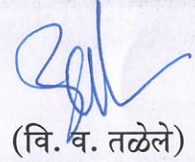 (वि. व. तळेले)